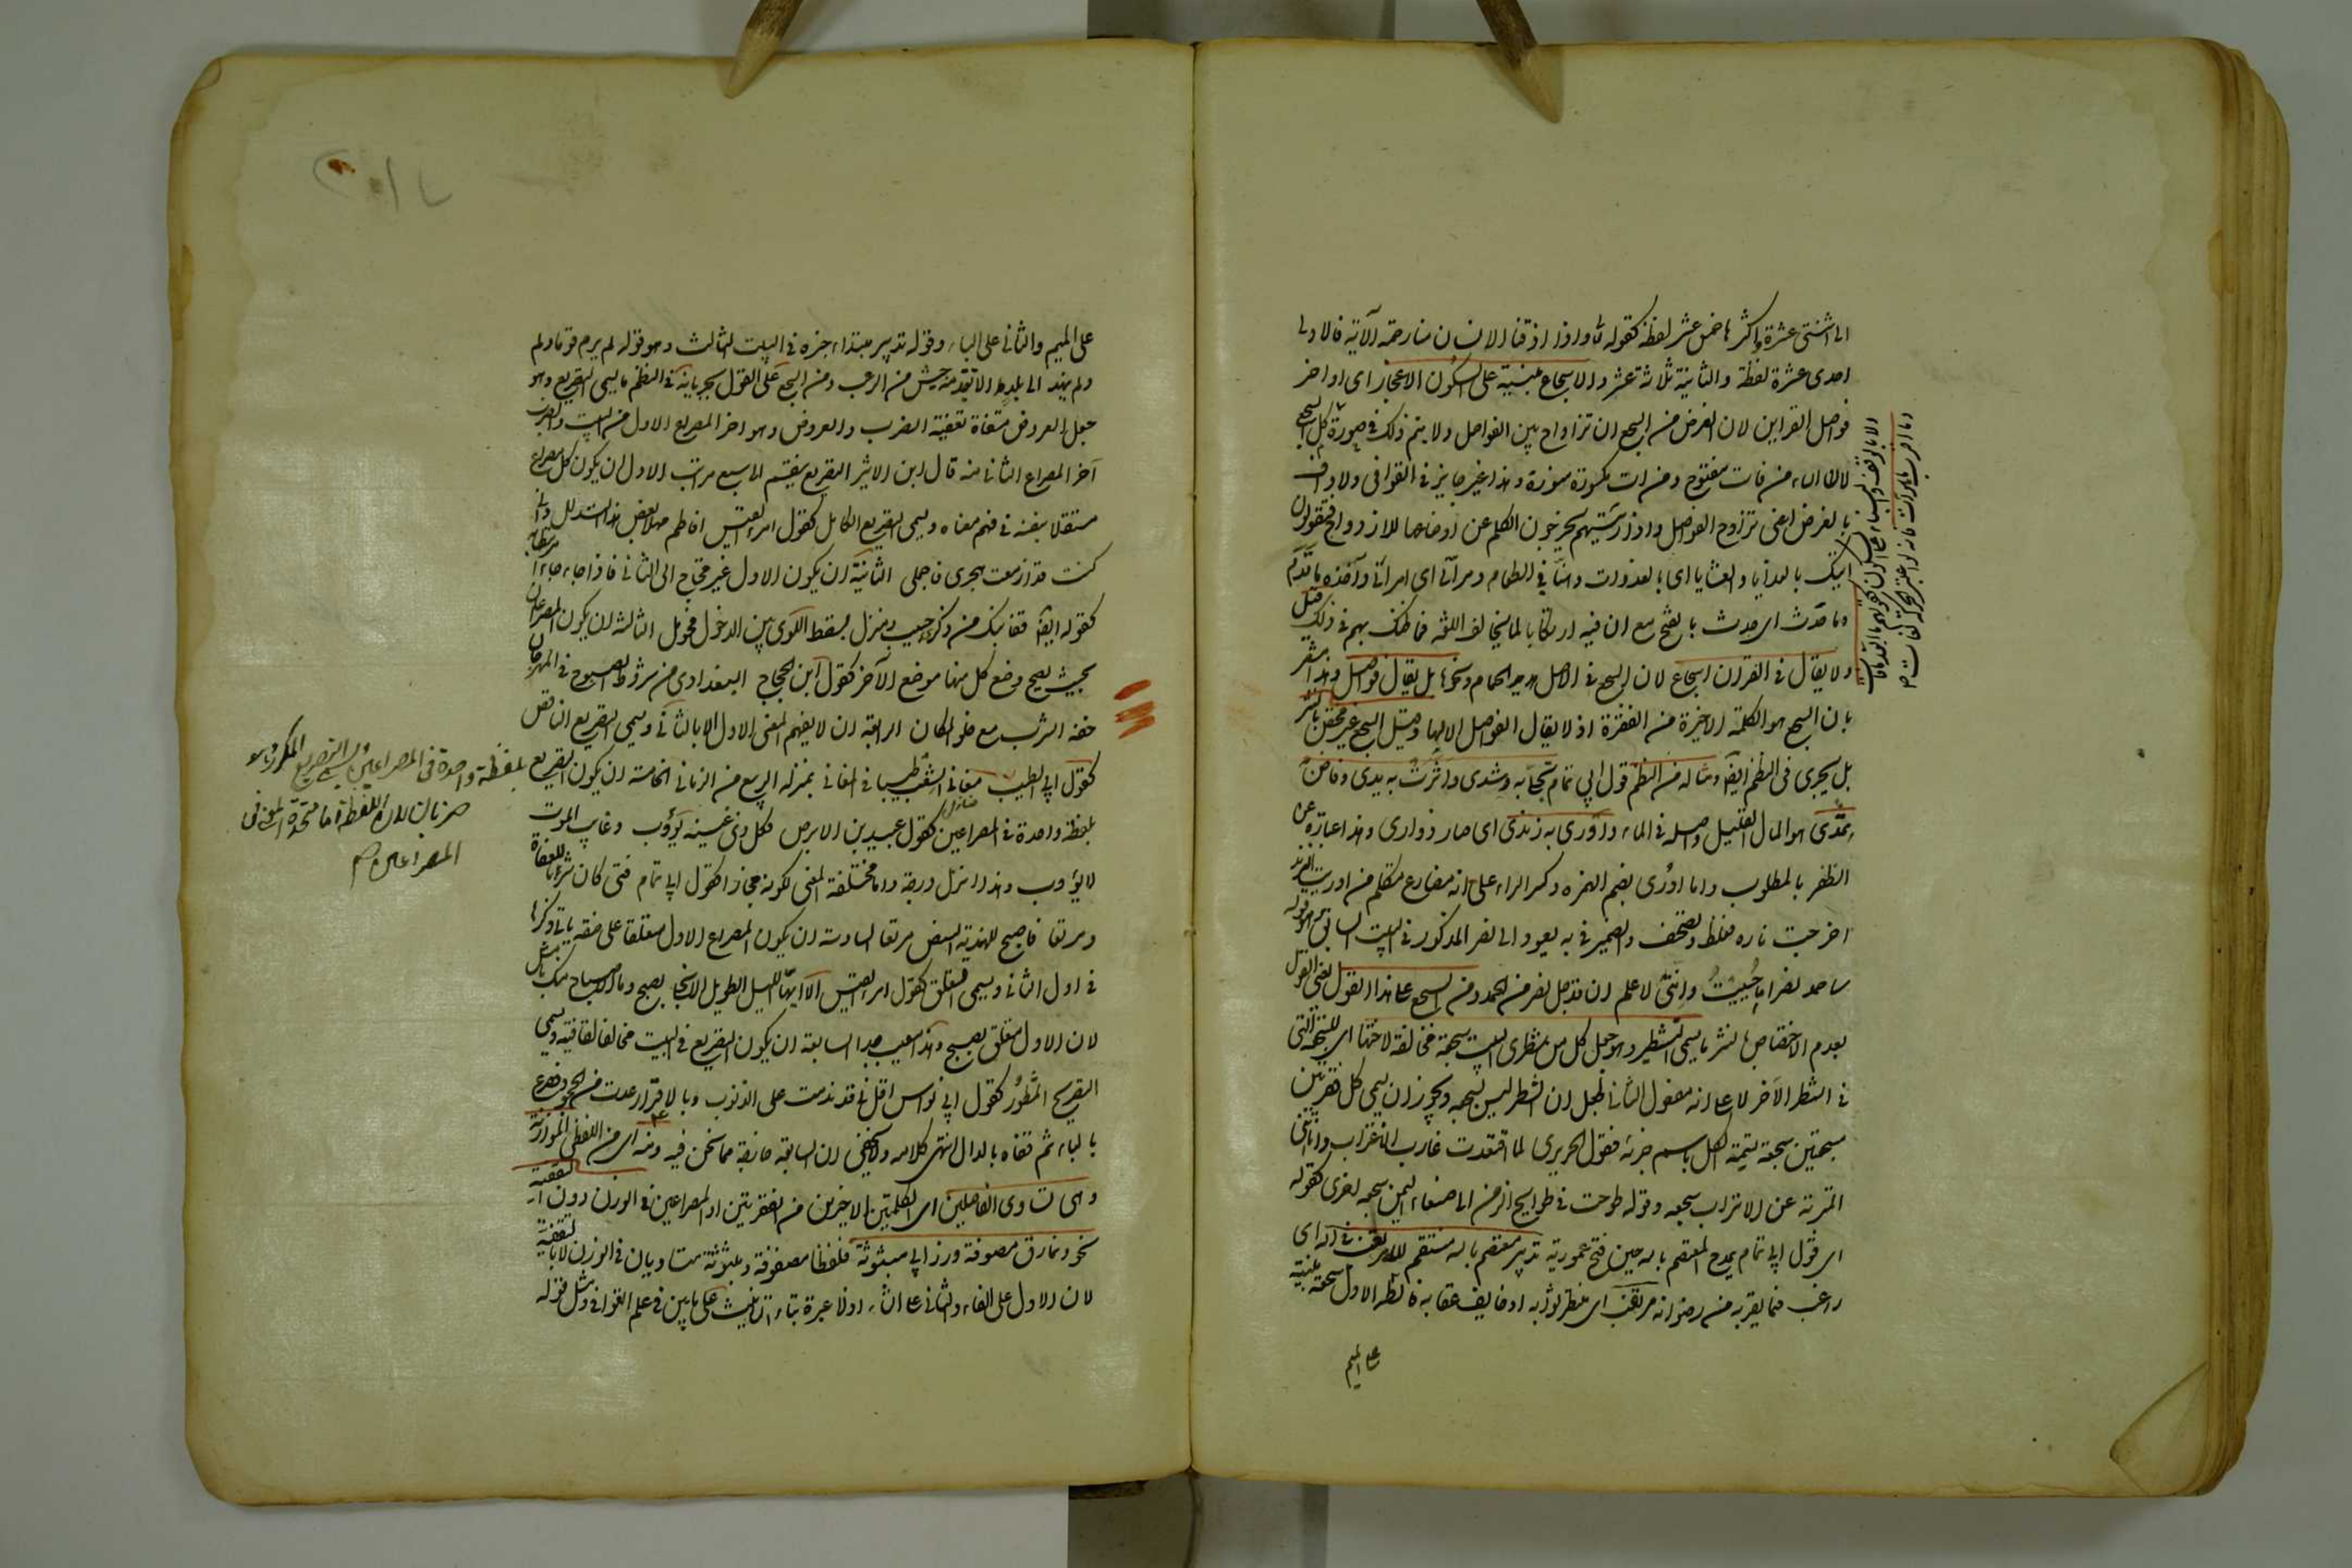 الى اثنتى عشرة واكثرها خمس عشر لفظة كقوله تع واذا اذقنا الانسان منا رحمة الآية فالاولى
احدى عشرة لفظة والثانية ثلاثة عشر والاسجاع مبنية على سكون الاعجاز اى اواخر
فواصل القراين لان الغرض من السجع ان تزاوج بين الفواصل ولا يتم ذلك فى صورة كل السجع
من فات مفتوح ومن ات مكسورة منونة وهذا غير جايز فى القوافى ولا واف
بالغرض اعنى تزاوج الفواصل واذا رئيتهم يخرجون الكلم عن اوضاعها للازدواج فيقولون
اتيك بالغدايا والعشايا اى بالغدوات وهنأنى الطعام ومرأنى اى امرأنى وآخذه ما قدم
وما حدث اى حدث بالفتح مع ان فيه ارتكابا لما يخالف اللغة فما ظنك بهم فى ذلك قيل
ولا يقال فى القرآن اسجاع لان السجع فى الاصل هدير الحمام ونحوها بل يقال فواصل وهذا
بان السجع هو الكلمة الاخيرة من الفقرة اذ لا يقال الفواصل الا لها وقيل السجع غير مختص بالنثر
بل يجرى فى النظم ايضا ومثاله من النظم قول ابى تمام تجلى به رشدى واثرت به يدى وفاض
به ثمدى هو المال القليل واصله فى الماء واورى به زندى اى صار ذا ورى وهذا عبارة عن
الظفر بالمطلوب واما اورى بضم الهمزه وكسر الراء على انه مضارع متكلم من اوريت الزند
اخرجت ناره فغلط وتصحيف والضمير فى به يعود الى نصر المذكور فى البيت السابق وهو قوله
ساحمد نصرا ما حييت وانى لاعلم ان قد جل نصر من الحمد ومن السجع على هذا القول يعنى القول
بعدم الاختصاص بالنثر ما يسمى التشطير وهو جعل كل من شطرى البيت سجعة مخالفة لاختها اى للسجعة التى
فى الشطر الآخر لا على انه مفعول الثانى لجعل لان الشطر ليس بسجعه ويجوز ان يسمى كل فقرتين
مسجعتين سجعة تسمية الكل باسم جزئه فقول الحريرى لما اقتعدت غارب الاغتراب وانأتنى
المتربة عن الاتراب سجعه وقوله طوحت بى طوايح الزمن الى صنعاء اليمن سجعه اخرى كقوله
اى قول ابى تمام يمدح المعتصم بالله حين فتح عمورية تدبير معتصم بالله منتقم لله مرتغب فى الله اى
راغب فيما يقربه من رضوانه مرتقب اى منتظر ثوابه او خايف عقابه فالشطر الاول سجعة مبنية
على الميم
على الميم والثانى على الباء وقوله تدبير مبتداء خبره فى البيت الثالث وهو قوله لم يرم قوما ولم
ولم ينهد الى بلد الا تقدمه جيش من الرعب ومن السجع على القول بجريانه فى النظم ما يسمى التصريع وهو
جعل العروض مقفاة تقفية الضرب والعروض وهو اخر المصراع الاول من البيت والضرب
آخر المصراع الثانى منه قال ابن الاثير التصريع ينقسم الى سبع مراتب الاول ان يكون كل مصراع
مستقلا بنفسه فى فهم معناه ويسمى التصريع الكامل كقول امرء القيس افاطم مهلا بعض هذا التدلل وان
كنت قد ازمعت هجرى فاجملى الثانية ان يكون الاول غير محتاج الى الثانى فاذا جاء جاء مرتبطا به
كقوله ايضا قفا نبك من ذكرى حبيب ومنزل بسقط اللوى بين الدخول فحومل الثالثه ان يكون المصراعان
بحيث يصح وضع كل منها موضع الآخر كقول ابن الحجاج البغدادى من شروط الصبوح فى المهرجان
خفة الشرب مع خلو المكان الرابعة ان لا يفهم المعنى الاول الا بالثانى ويسمى التصريع الناقص
كقول ابى الطيب مغانى الشعب طيبا فى المغانى بمنزلة الربيع من الزمان الخامسة ان يكون التصريع
بلفظة واحدة فى المصراعين كقول عبيد بن الابرص فكل ذى غيبة يؤوب وغايب الموت
لا يؤوب وهذا انزل درجة واما مختلفة المعنى لكونه مجازا كقول ابى تمام فتى كان شربا للعفاة
ومرتعا فاصبح للهندية البيض مرتعا السادسة ان يكون المصراع الاول معلقا على صفة ياتى ذكرها
فى اول الثانى ويسمى التعليق كقول امرء القيس الا ايها الليل الطويل الا انجلى بصبح وما الاصباح منك بامثل
لان الاول معلق بصبح وهذا معيب جدا السابعة ان يكون التصريع فى البيت مخالفا لقافيته ويسمى
التصريع المشطور كقول ابى نواس اقلنى قد ندمت على الذنوب وبالاقرار عدت من الجحود فصرع
بالباء ثم قفاه بالدال انتهى كلامه ولا يخفى ان السابعة خارجة مما نحن فيه ومنه اى من اللفظى الموازنة
وهى تساوى الفاصلتين اى الكلمتين الاخيرتين من الفقرتين او المصراعين فى الوزن دون التقفية
نحو ونمارق مصفوفة وزرابى مبثوثة فلفظا مصفوفة ومبثوثة متساويان فى الوزن لا التقفية
لان الاول على الفاء والثانى على الثاء اذ لا عبرة بتاء التانيث على ما بين فى علم القوافى ومثل قوله
بلفظة واحدة فى المصراعين ويسمى التصريع المكرر وهو
ضربان لان اللفظة اما متحدة المعنى فى
المصراعين